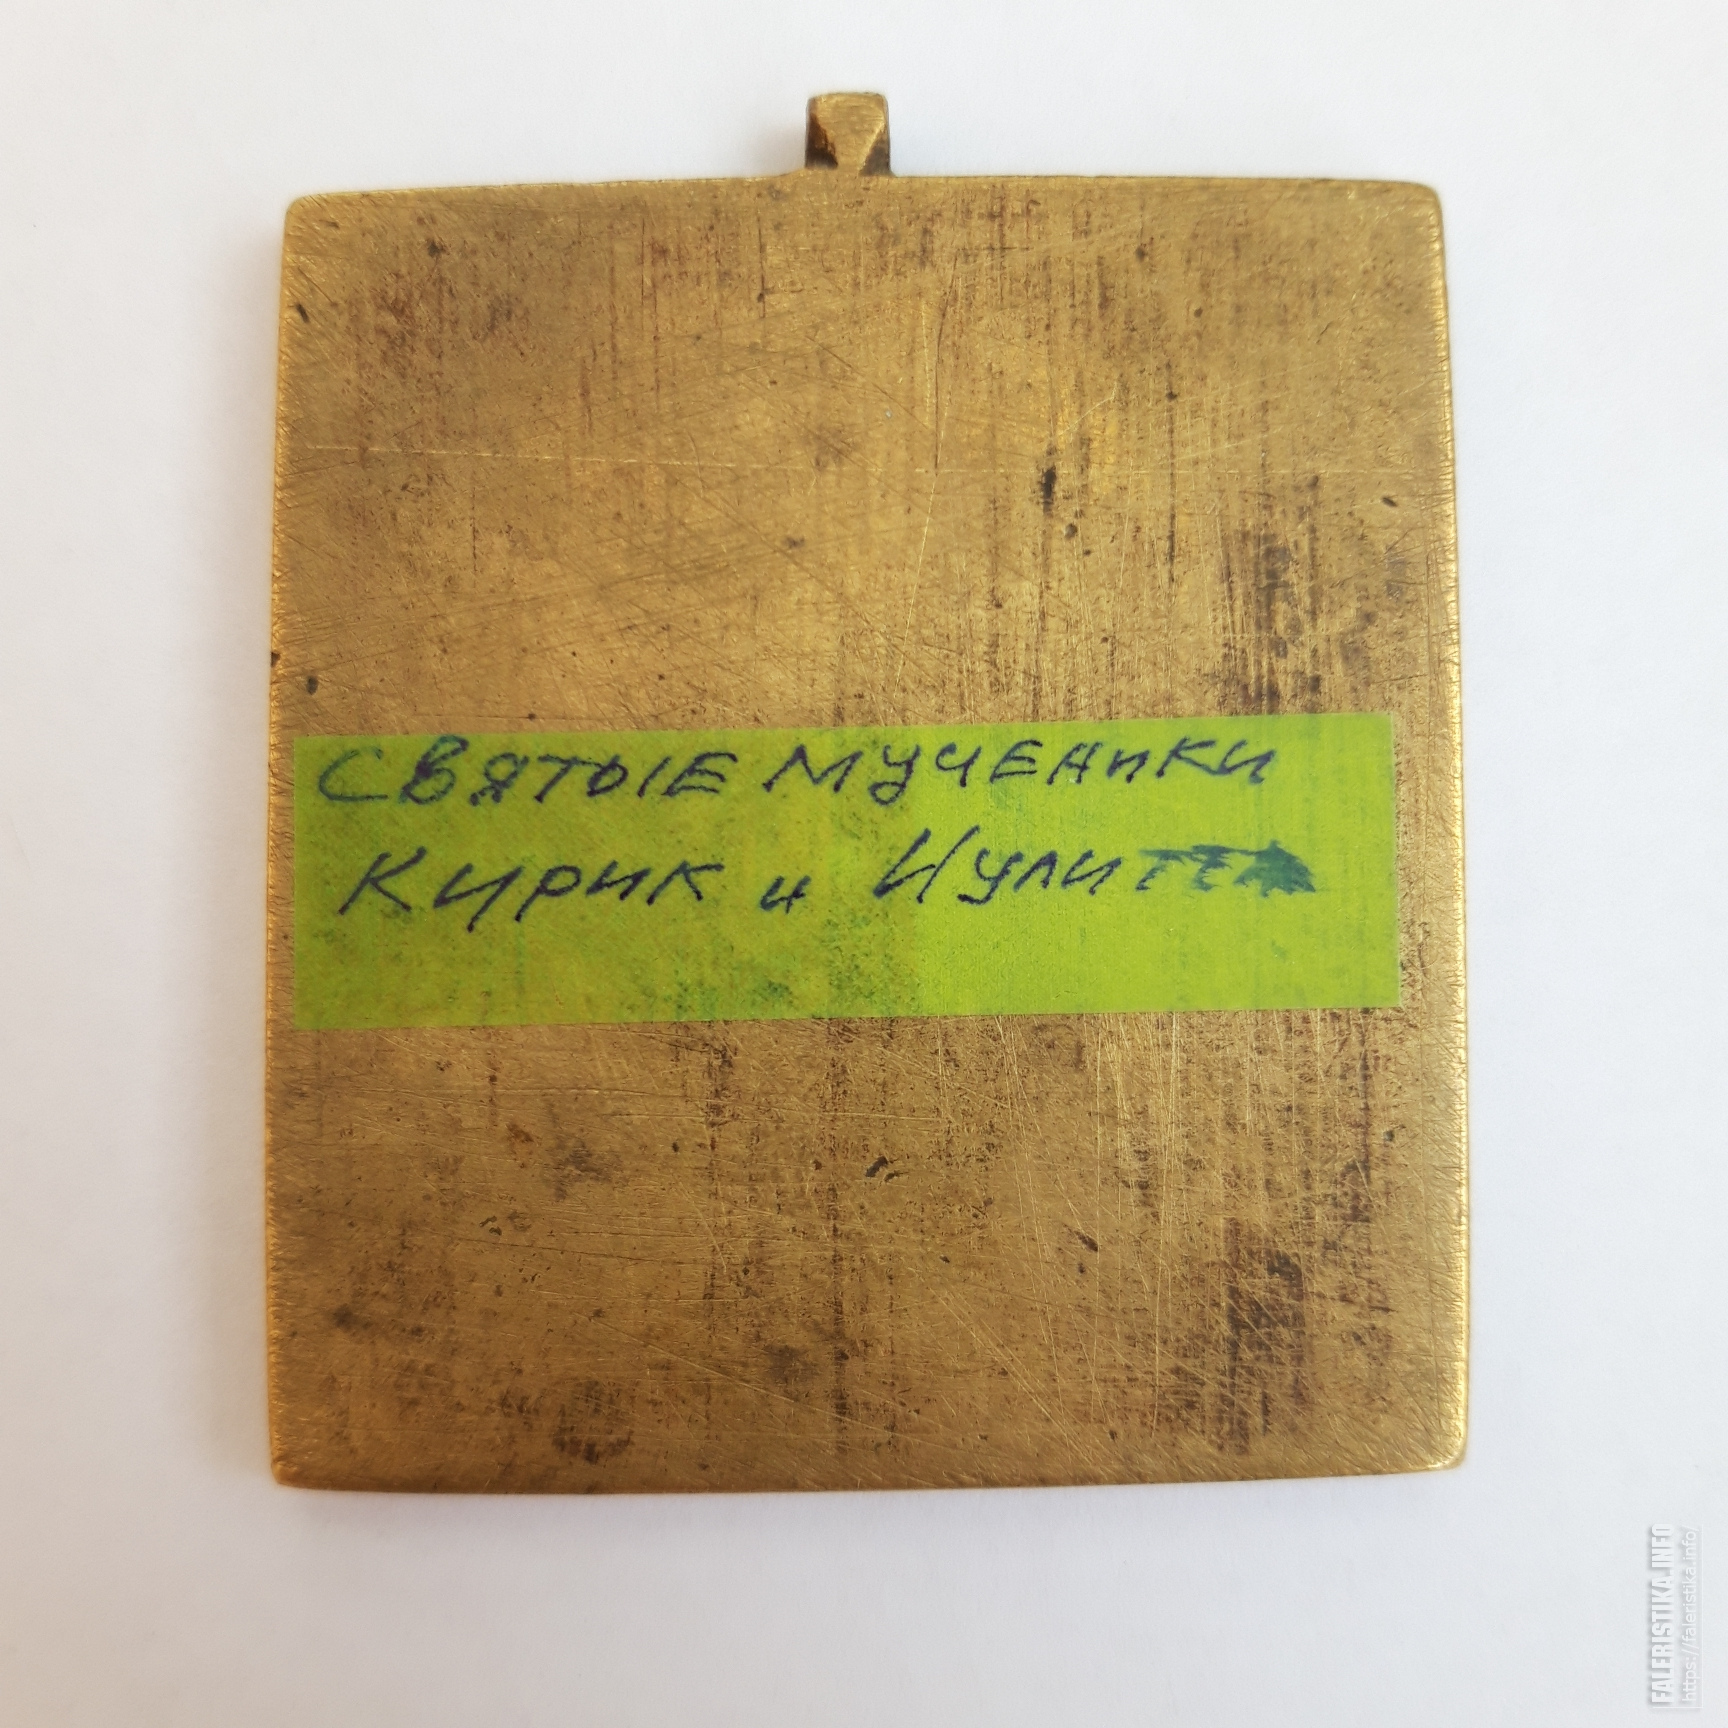 СВЯТЫЕ МУЧЕНИКИ
КИРИК и ИУЛИТТА
FALERISTIKA.INFO
https://faleristika.info/